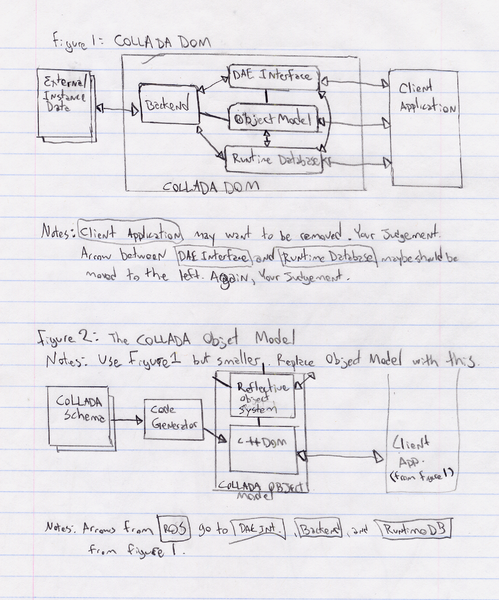 Figure 1: COLLADA DOM
External
Instance
Data
Backend
DAE Interface
Object Model
Runtime Database
COLLADA DOM
Client
Application
Notes: Client Application may want to be removed. Your Judgement.
Arrow between DAE Interface and Runtime Database maybe should be
moved to the left. Again, Your Judgement.
Figure 2: The COLLADA Objet Model
Notes: Use Figure 1 but smaller. Replace Object Model with this.
COLLADA
Schema
Code
Generator
Reflective
Object
System
C++ DOM
COLLADA OBJECT
Model
Client
App.
(from figure 1)
Notes: Arrows from ROS go to DAE Int., Backend, and Runtime DB
from figure 1.